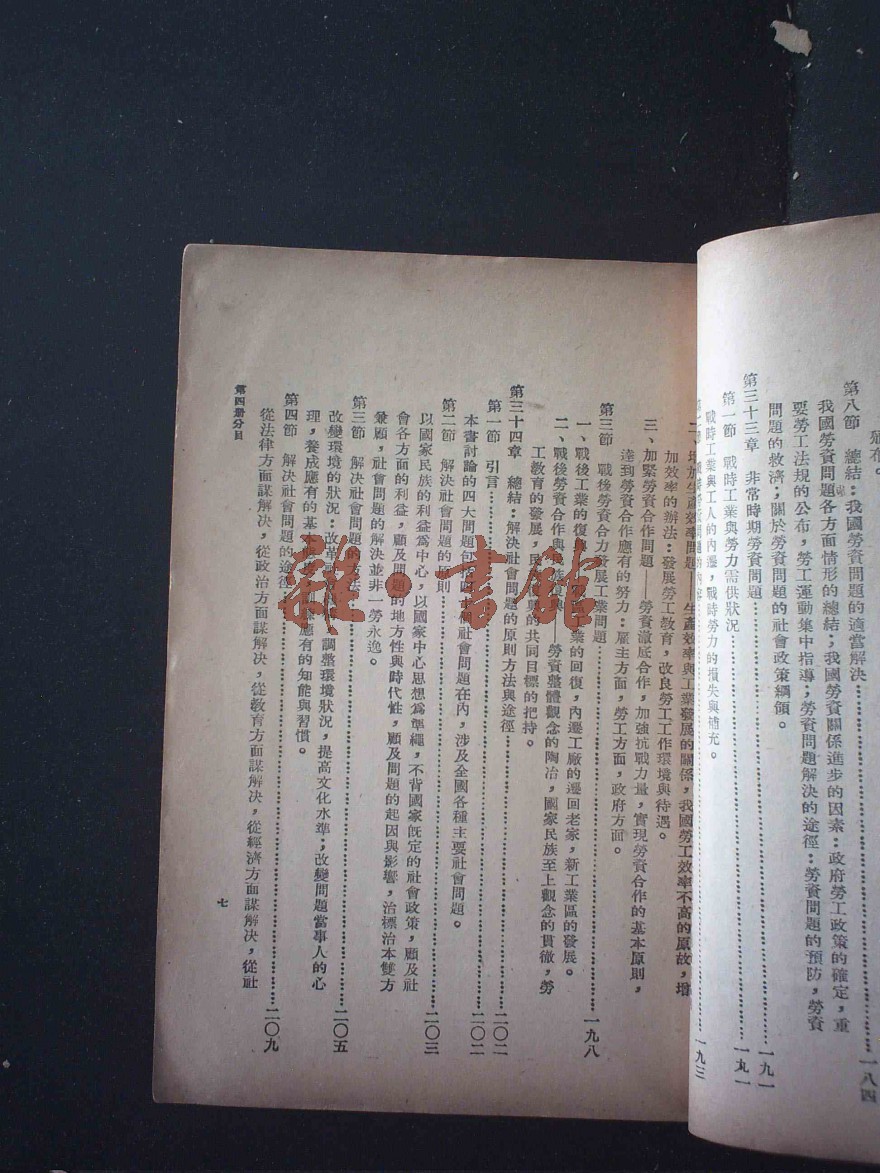 頒布。
第八節　總結：我國勞資問題的適當解決……一八四
我國勞資問題各方面情形的總結；我國勞資關係進步的因素：政府勞工政策的確定，重
要勞工法規的公布，勞工運動集中指導；勞資問題解決的途徑：勞資問題的預防，勞資
問題的救濟；關於勞資問題的社會政策綱領。
第三十三章　非常時期勞資問題……一九一
第一節　戰時工業與勞力需供狀況……一九一
戰時工業與工人的內遷，戰時勞力的損失與補充。
……一九三
二、增加生產效率問題——生產效率與工業發展的關係，我國勞工效率不高的原故，增
加效率的辦法：發展勞工教育，改良勞工工作環境與待遇。
三、加緊勞資合作問題——勞資澈底合作，加強抗戰力量，實現勞資合作的基本原則，
達到勞資合作應有的努力：雇主方面，勞工方面，政府方面。
第三節　戰後勞資合力發展工業問題……一九八
一、戰後工業的復興　業的回復，內遷工廠的遷回老家，新工業區的發展。
二、戰後勞資合作與　興——勞資整體觀念的陶冶，國家民族至上觀念的貫徹，勞
工教育的發展，民　興的共同目標的把持。
第三十四章　總結：解決社會問題的原則方法與途徑……二〇二
第一節　引言……二〇二
本書討論的四大問題包括四　個社會問題在內，涉及全國各種主要社會問題。
第二節　解決社會問題的原則……二〇三
以國家民族的利益爲中心，以國家中心思想爲準繩，不背國家旣定的社會政策，顧及社
會各方面的利益，顧及問題的地方性與時代性，顧及問題的起因與影響，治標治本雙方
兼顧，社會問題的解決並非一勞永逸。
第三節　解決社會問題的方法……二〇五
改變環境的狀況：改革　調整環境狀況，提高文化水準；改變問題當事人的心
理，養成應有的基　訓練應有的知能與習慣。
第四節　解決社會問題的途徑……二〇九
從法律方面謀解決，從政治方面謀解決，從教育方面謀解決，從經濟方面謀解決，從社
第四册分目
七
雜·書館